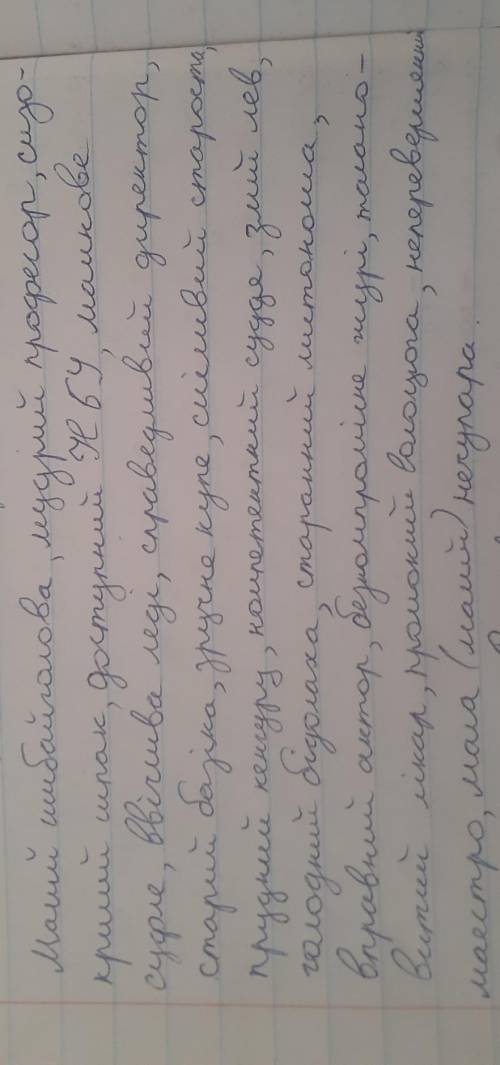 Малий шибайголова, мудрий професор, сизо-
крилий шпак, доступний НБУ, малинове
суфле, ввічлива леді, справедливий директор,
старий базіка, зручне купе, сміливий староста,
прудкий кенгуру, компетентний суддя, злий лев,
голодний бідолаха, старанний листоноша,
вправний актор, безкомпромісне журі, талано-
витий лікар, промоклий волоцюга, неперевершений
маестро, мала (малий) нечупара.